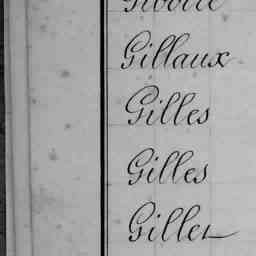 Gillaux
Gilles
Gilles
Gillet